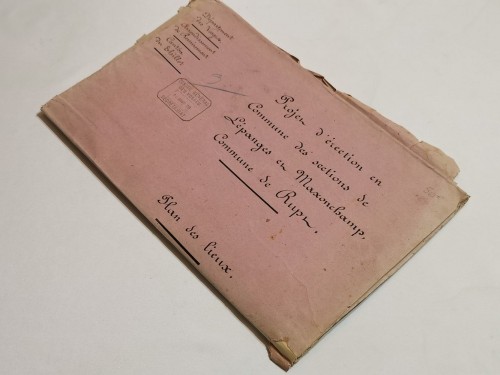 Département
des Vosges
Arrondissement
de Remiremont
Canton
du Thillot
Projet d'érection en
Commune des sections de
Lépanges et Maxonchamp,
Commune de Rupt.
Plan des lieux.